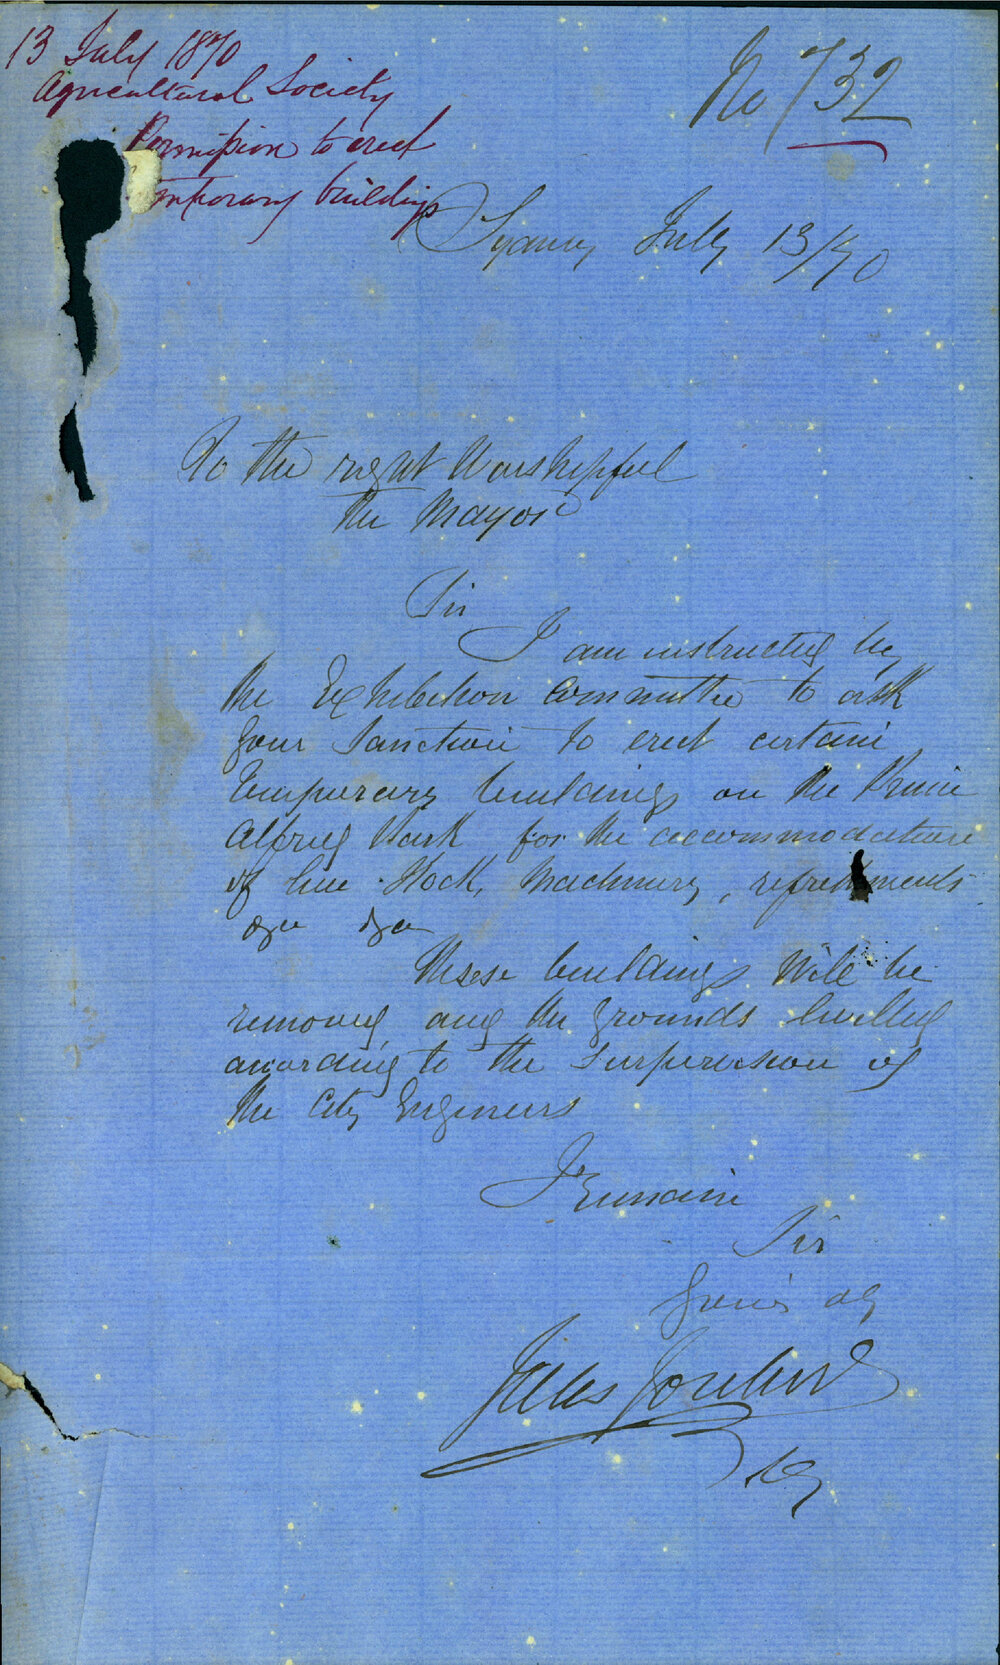 13 July 1870
Agricultural Society
Permission to erect
temporary buildings
No 732
Sydney July 13/70
To the right Worshipful
the Mayor
Sir
I am instructed by
the Exhibition Committee to ask
your Sanction to erect certain
temporary buildings on the Prince
Alfred Park for the accommodation
of live Stock, Machinery, refreshments
&c &c
These buildings will be
removed and the grounds levelled
according to the Supervision of
the City Engineers
I remain
Sir
Yours &c
Jules Joubert